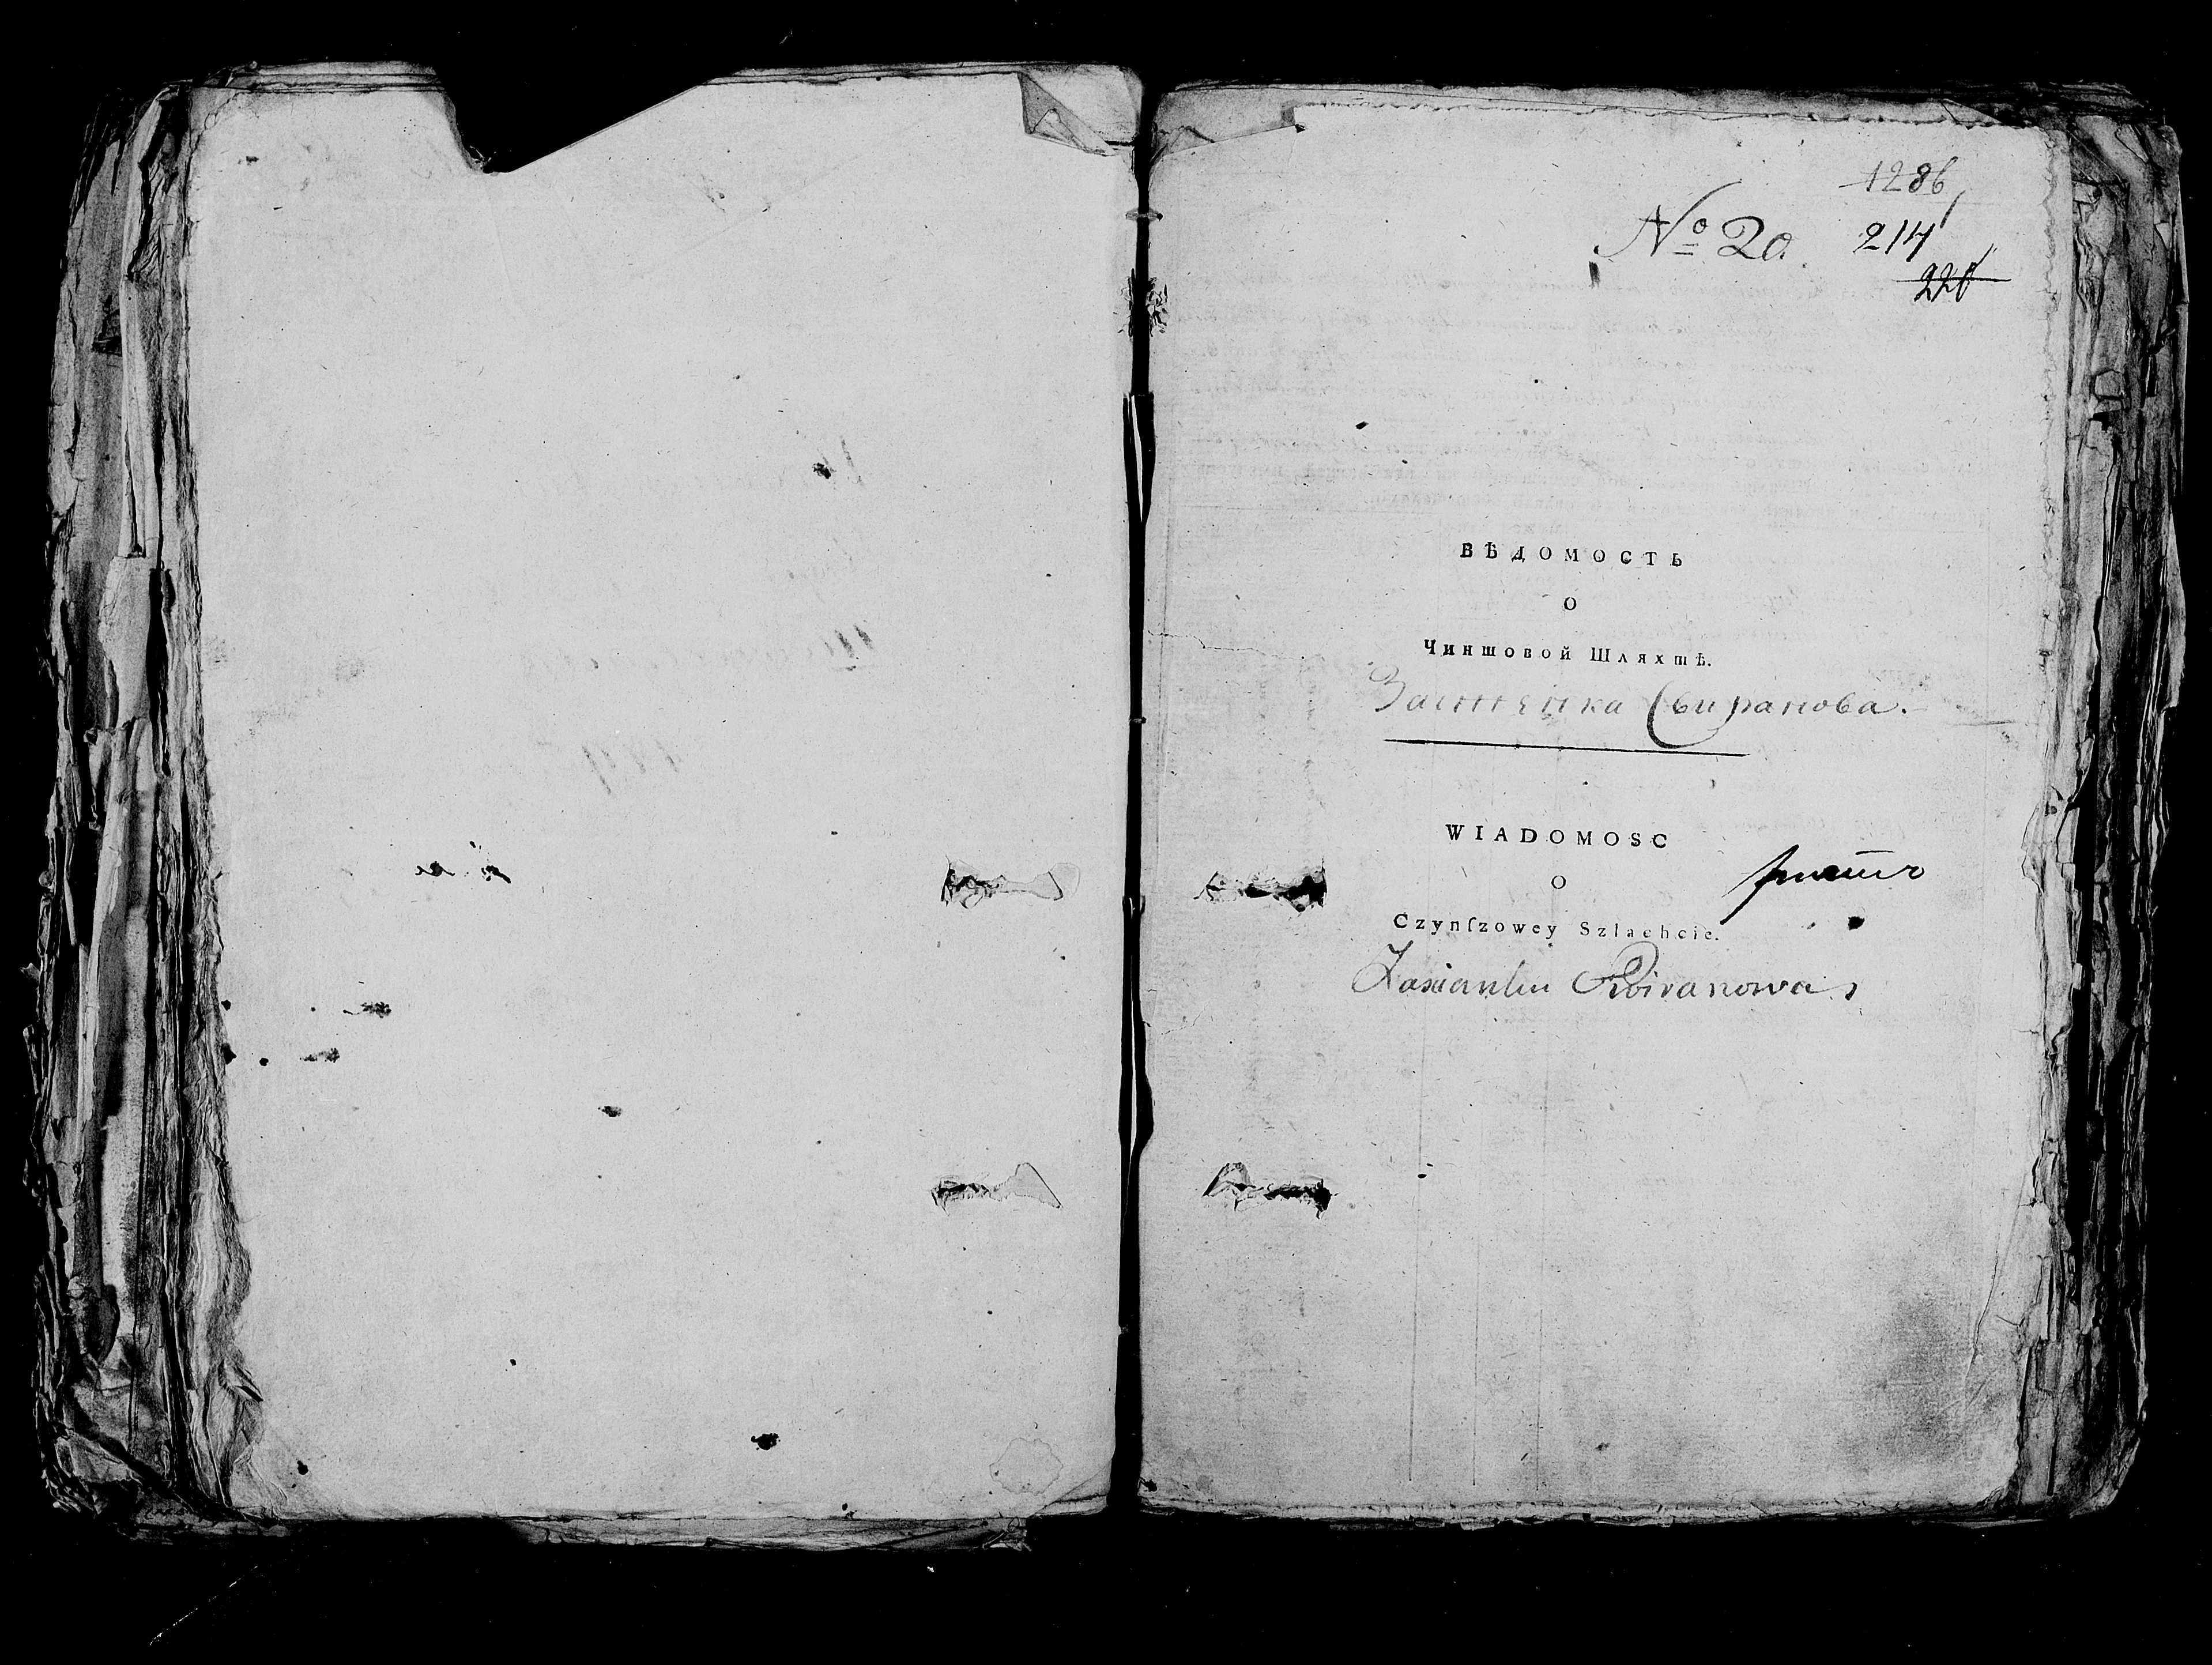 1286
№ 20. 214
226
ВѢДОМОСТЬ
О
Чиншовой Шляхтѣ.
Застѣнка Свиранова.
WIADOMOSC
O
Czynſzowey Szlachcie.
Zascianku Swiranowa